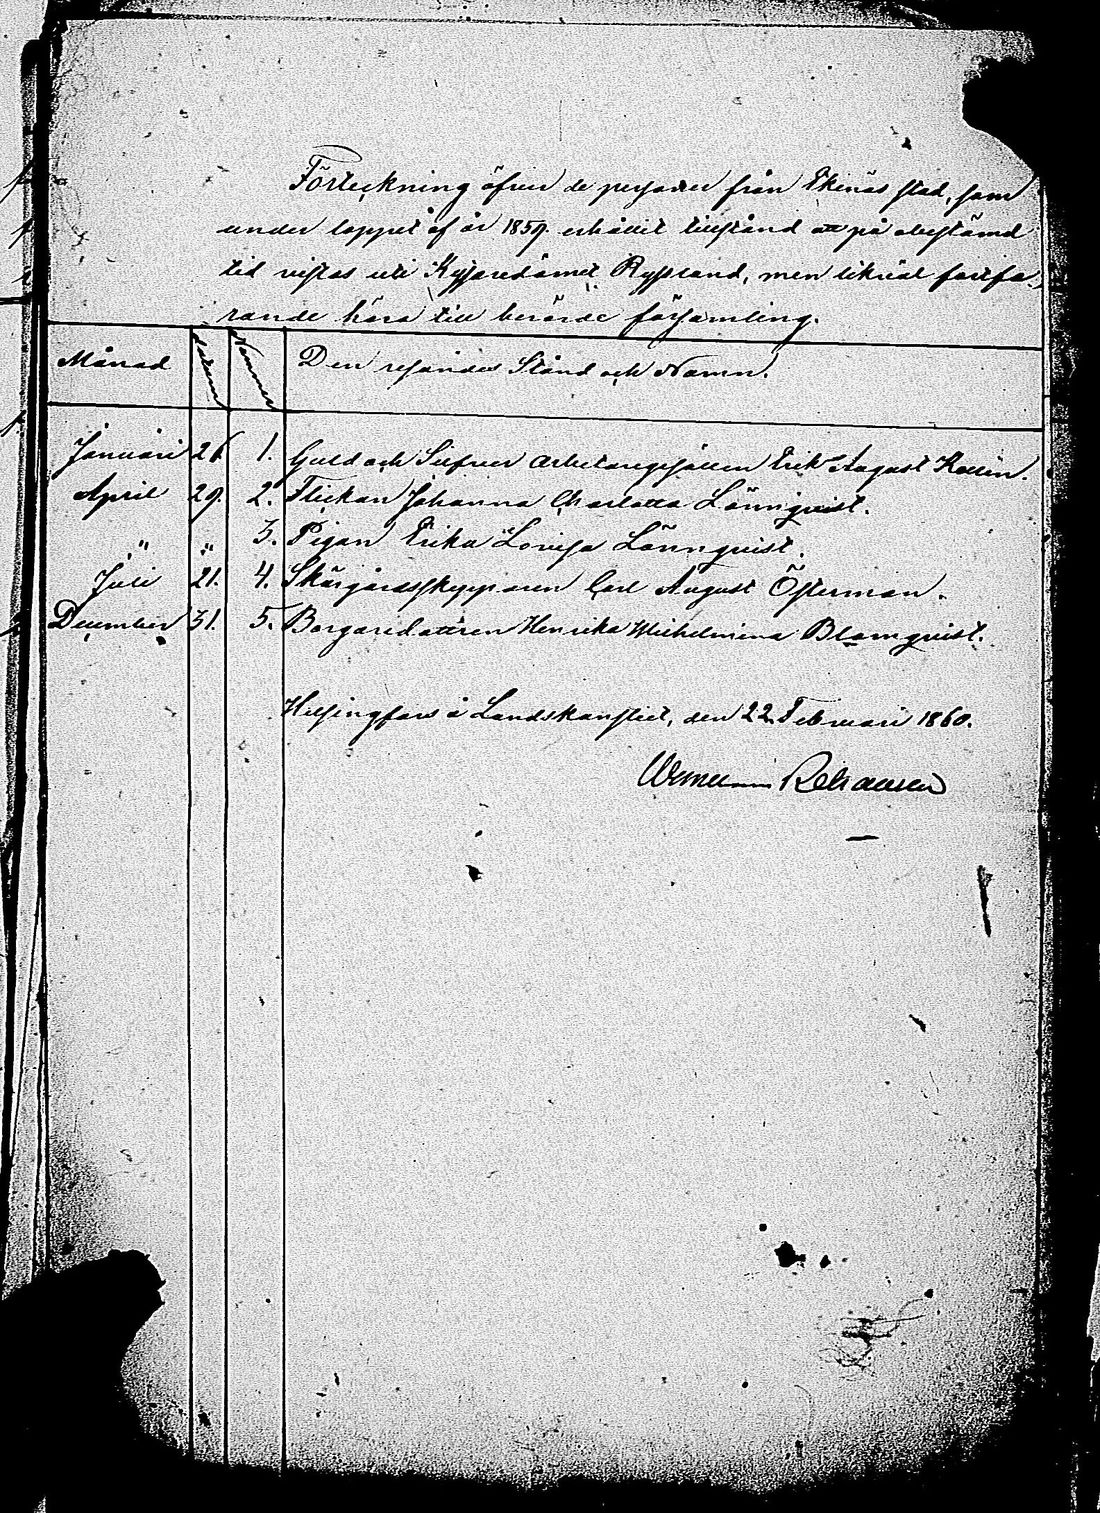 Förteckning öfver de personer från Ekenäs stad, som
under loppet af år 1859. erhållit tillstånd att på obestämd
tid vistas uti Kejsaredömet Ryssland, men likväl fortfa-
rande höra till berörde församling.
Månad Datum Nummer Den resandes Stånd och Namn.
Januari 26 1. Guld och Silfver arbetaregesällen Erik August Kallin.
April 29. 2. Flickan Johanna Charlotta Lönnqvist.
" " 3. Pigan Erika Lovisa Lönnqvist.
Juli 21. 4. Skärgårdsskepparen Carl August Österman.
December 31. 5. Borgaredottren Henrika Wilhelmina Blomqvist.
Helsingfors å Landskansliet, den 22 Februari 1860.